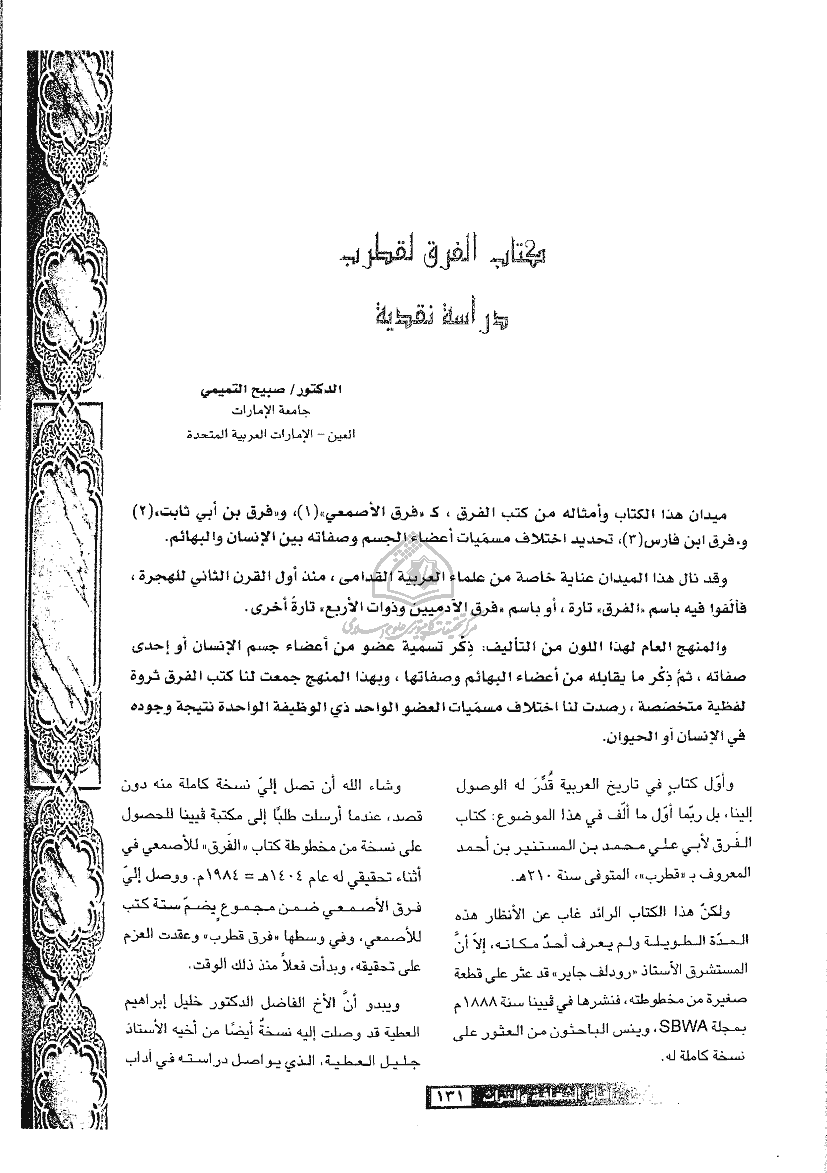 كتاب الفرق لقطرب
دراسة نقدية
الدكتور/ صبيح التميمي
جامعة الإمارات
العين - الإمارات العربية المتحدة
ميدان هذا الكتاب وأمثاله من كتب الفرق ، كـ «فرق الأصمعي»(١)، و«فرق بن أبي ثابت،(٢)
و«فرق ابن فارس(٣)، تحديد اختلاف مسمّيات أعضاء الجسم وصفاته بين الإنسان والبهائم.
وقد نال هذا الميدان عناية خاصة من علماء العربية القدامى ، منذ أول القرن الثاني للهجرة ،
فألّفوا فيه باسم «الفرق» تارة ، أو باسم «فرق الآدميين وذوات الأربع» تارةً أخرى .
والمنهج العام لهذا اللون من التأليف: ذِكْر تسمية عضو من أعضاء جسم الإنسان أو إحدى
صفاته ، ثمُ ذِكْر ما يقابله من أعضاء البهائم وصفاتها ، وبهذا المنهج جمعت لنا كتب الفرق ثروة
لفظية متخصّصة ، رصدت لنا اختلاف مسمّيات العضو الواحد ذي الوظيفة الواحدة نتيجة وجوده
في الإنسان أو الحيوان.
وأوّل كتابٍ في تاريخ العربية قُدِّرَ له الوصول
إلينا، بل ربّما أول ما ألّف في هذا الموضوع: كتاب
الفَرق لأبي علي محمد بن المستنير بن أحمد
المعروف بـ «قطرب»، المتوفى سنة ٢١٠هـ.
ولكنّ هذا الكتاب الرائد غاب عن الأنظار هذه
المدّة الطويلة ولم يعرف أحدٌ مكانه، إلاّ أنَّ
المستشرق الأستاذ «رودلف جاير» قد عثر على قطعة
صغيرة من مخطوطته، فنشرها في ڤيينا سنة ١٨٨٨م
بمجلة SBWA، وينس الباحثون من العثور على
نسخة كاملة له.
وشاء الله أن تصل إليّ نسخة كاملة منه دون
قصد، عندما أرسلت طلبًا إلى مكتبة ڤيينا للحصول
على نسخة من مخطوطة كتاب «الفَرق» للأصمعي في
أثناء تحقيقي له عام ١٤٠٤هـ = ١٩٨٤م. ووصل إليّ
فرق الأصمعي ضمن مجموعٍ يضمّ ستة كتب
للأصمعي، وفي وسطها «فرق قطرب» وعقدت العزم
على تحقيقه، وبدأت فعلاً منذ ذلك الوقت.
ويبدو أنَّ الأخ الفاضل الدكتور خليل إبراهيم
العطية قد وصلت إليه نسخةٌ أيضًا من أخيه الأستاذ
جليل العطية، الذي يواصل دراسته في آداب
آفاق الثقافة والتراث ١٣١